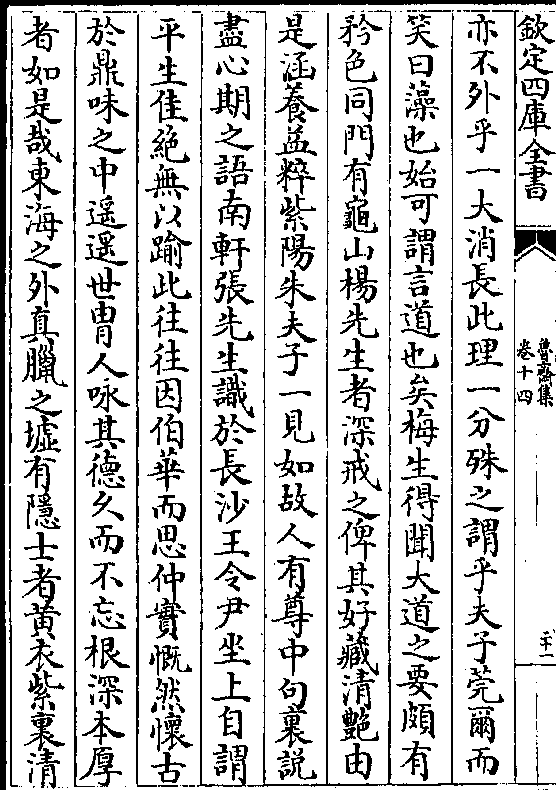 欽定四庫全書
魯齋集
卷十四
二十一
亦不外乎一大消長此理一分殊之謂乎夫子莞爾而
笑曰藻也始可謂言道也矣梅生得聞大道之要頗有
矜色同門有龜山楊先生者深戒之俾其好藏清艷由
是涵養益粹紫陽朱夫子一見如故人有尊中句裏説
盡心期之語南軒張先生識於長沙王令尹坐上自謂
平生佳絶無以踰此往往因伯華而思仲實慨然懷古
於鼎味之中遥遥世胄人咏其德久而不忘根深本厚
者如是哉東海之外真臘之墟有隱士者黄衣紫裏清